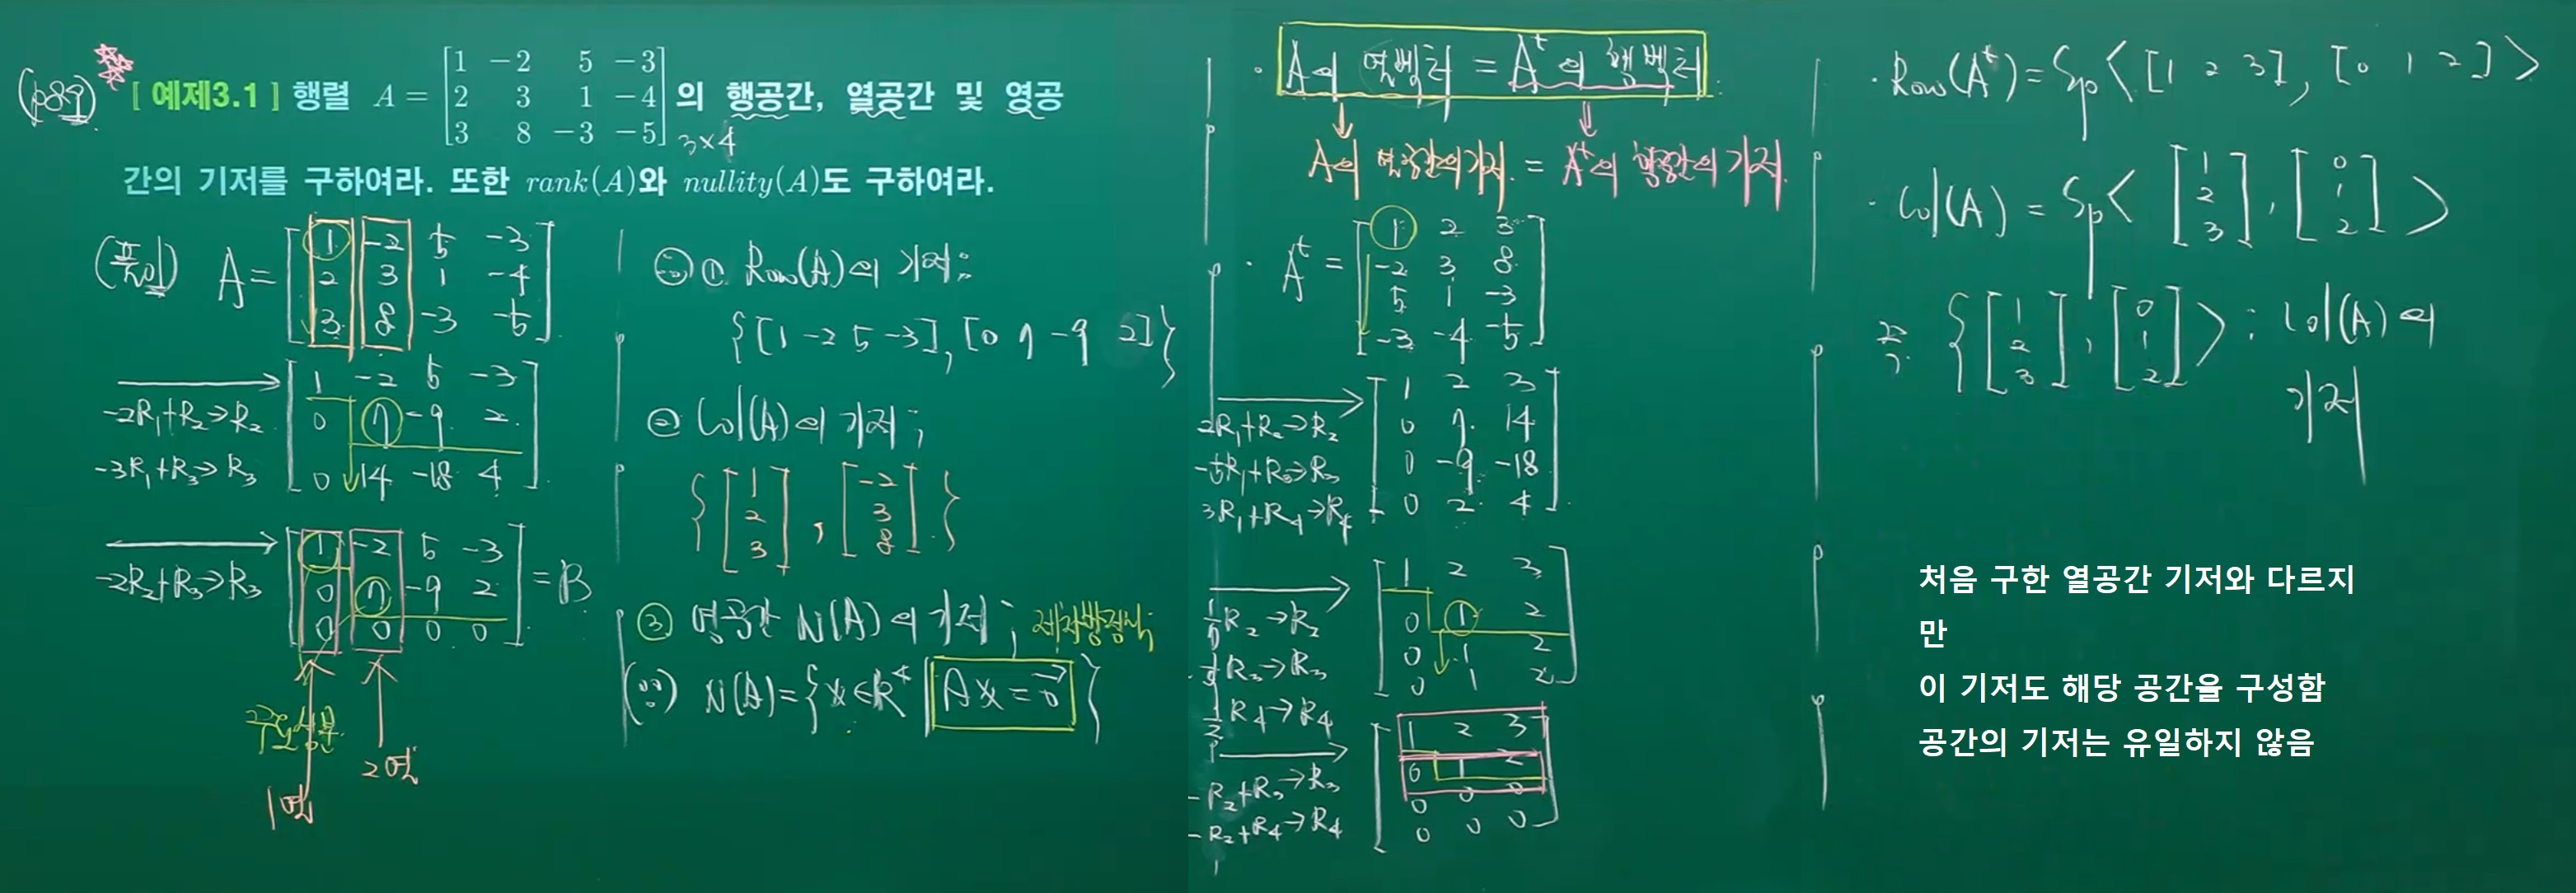 (p89) [ 예제3.1 ] 행렬 A = [1 -2 5 -3; 2 3 1 -4; 3 8 -3 -5] 의 행공간, 열공간 및 영공
3×4
간의 기저를 구하여라. 또한 rank(A)와 nullity(A)도 구하여라.
(풀이) A =
1 -2 5 -3
2 3 1 -4
3 8 -3 -5
-2R₁+R₂→R₂
-3R₁+R₃→R₃
1 -2 5 -3
0 7 -9 2
0 14 -18 4
-2R₂+R₃→R₃
1 -2 5 -3
0 7 -9 2
0 0 0 0
= B
1열
2열
① Row(A)의 기저;
{[1 -2 5 -3], [0 7 -9 2]}
② Col(A)의 기저;
{[1 2 3], [-2 3 8]}
③ 영공간 N(A)의 기저;
(∵) N(A)={x∈R⁴ | Ax=0}
· A의 열벡터 = Aᵗ의 행벡터.
A의 열공간의 기저. = Aᵗ의 행공간의 기저.
· Aᵗ =
1 2 3
-2 3 8
5 1 -3
-3 -4 -5
2R₁+R₂→R₂
-5R₁+R₃→R₃
3R₁+R₄→R₄
1 2 3
0 7 14
0 -9 -18
0 2 4
1/7 R₂→R₂
-1/9 R₃→R₃
1/2 R₄→R₄
1 2 3
0 1 2
0 1 2
0 1 2
-R₂+R₃→R₃
-R₂+R₄→R₄
1 2 3
0 1 2
0 0 0
0 0 0
· Row(Aᵗ) = Sp< [1 2 3], [0 1 2] >
· Col(A) = Sp< [1 2 3], [0 1 2] >
{[1 2 3], [0 1 2]> : Col(A)의
기저
처음 구한 열공간 기저와 다르지
만
이 기저도 해당 공간을 구성함
공간의 기저는 유일하지 않음